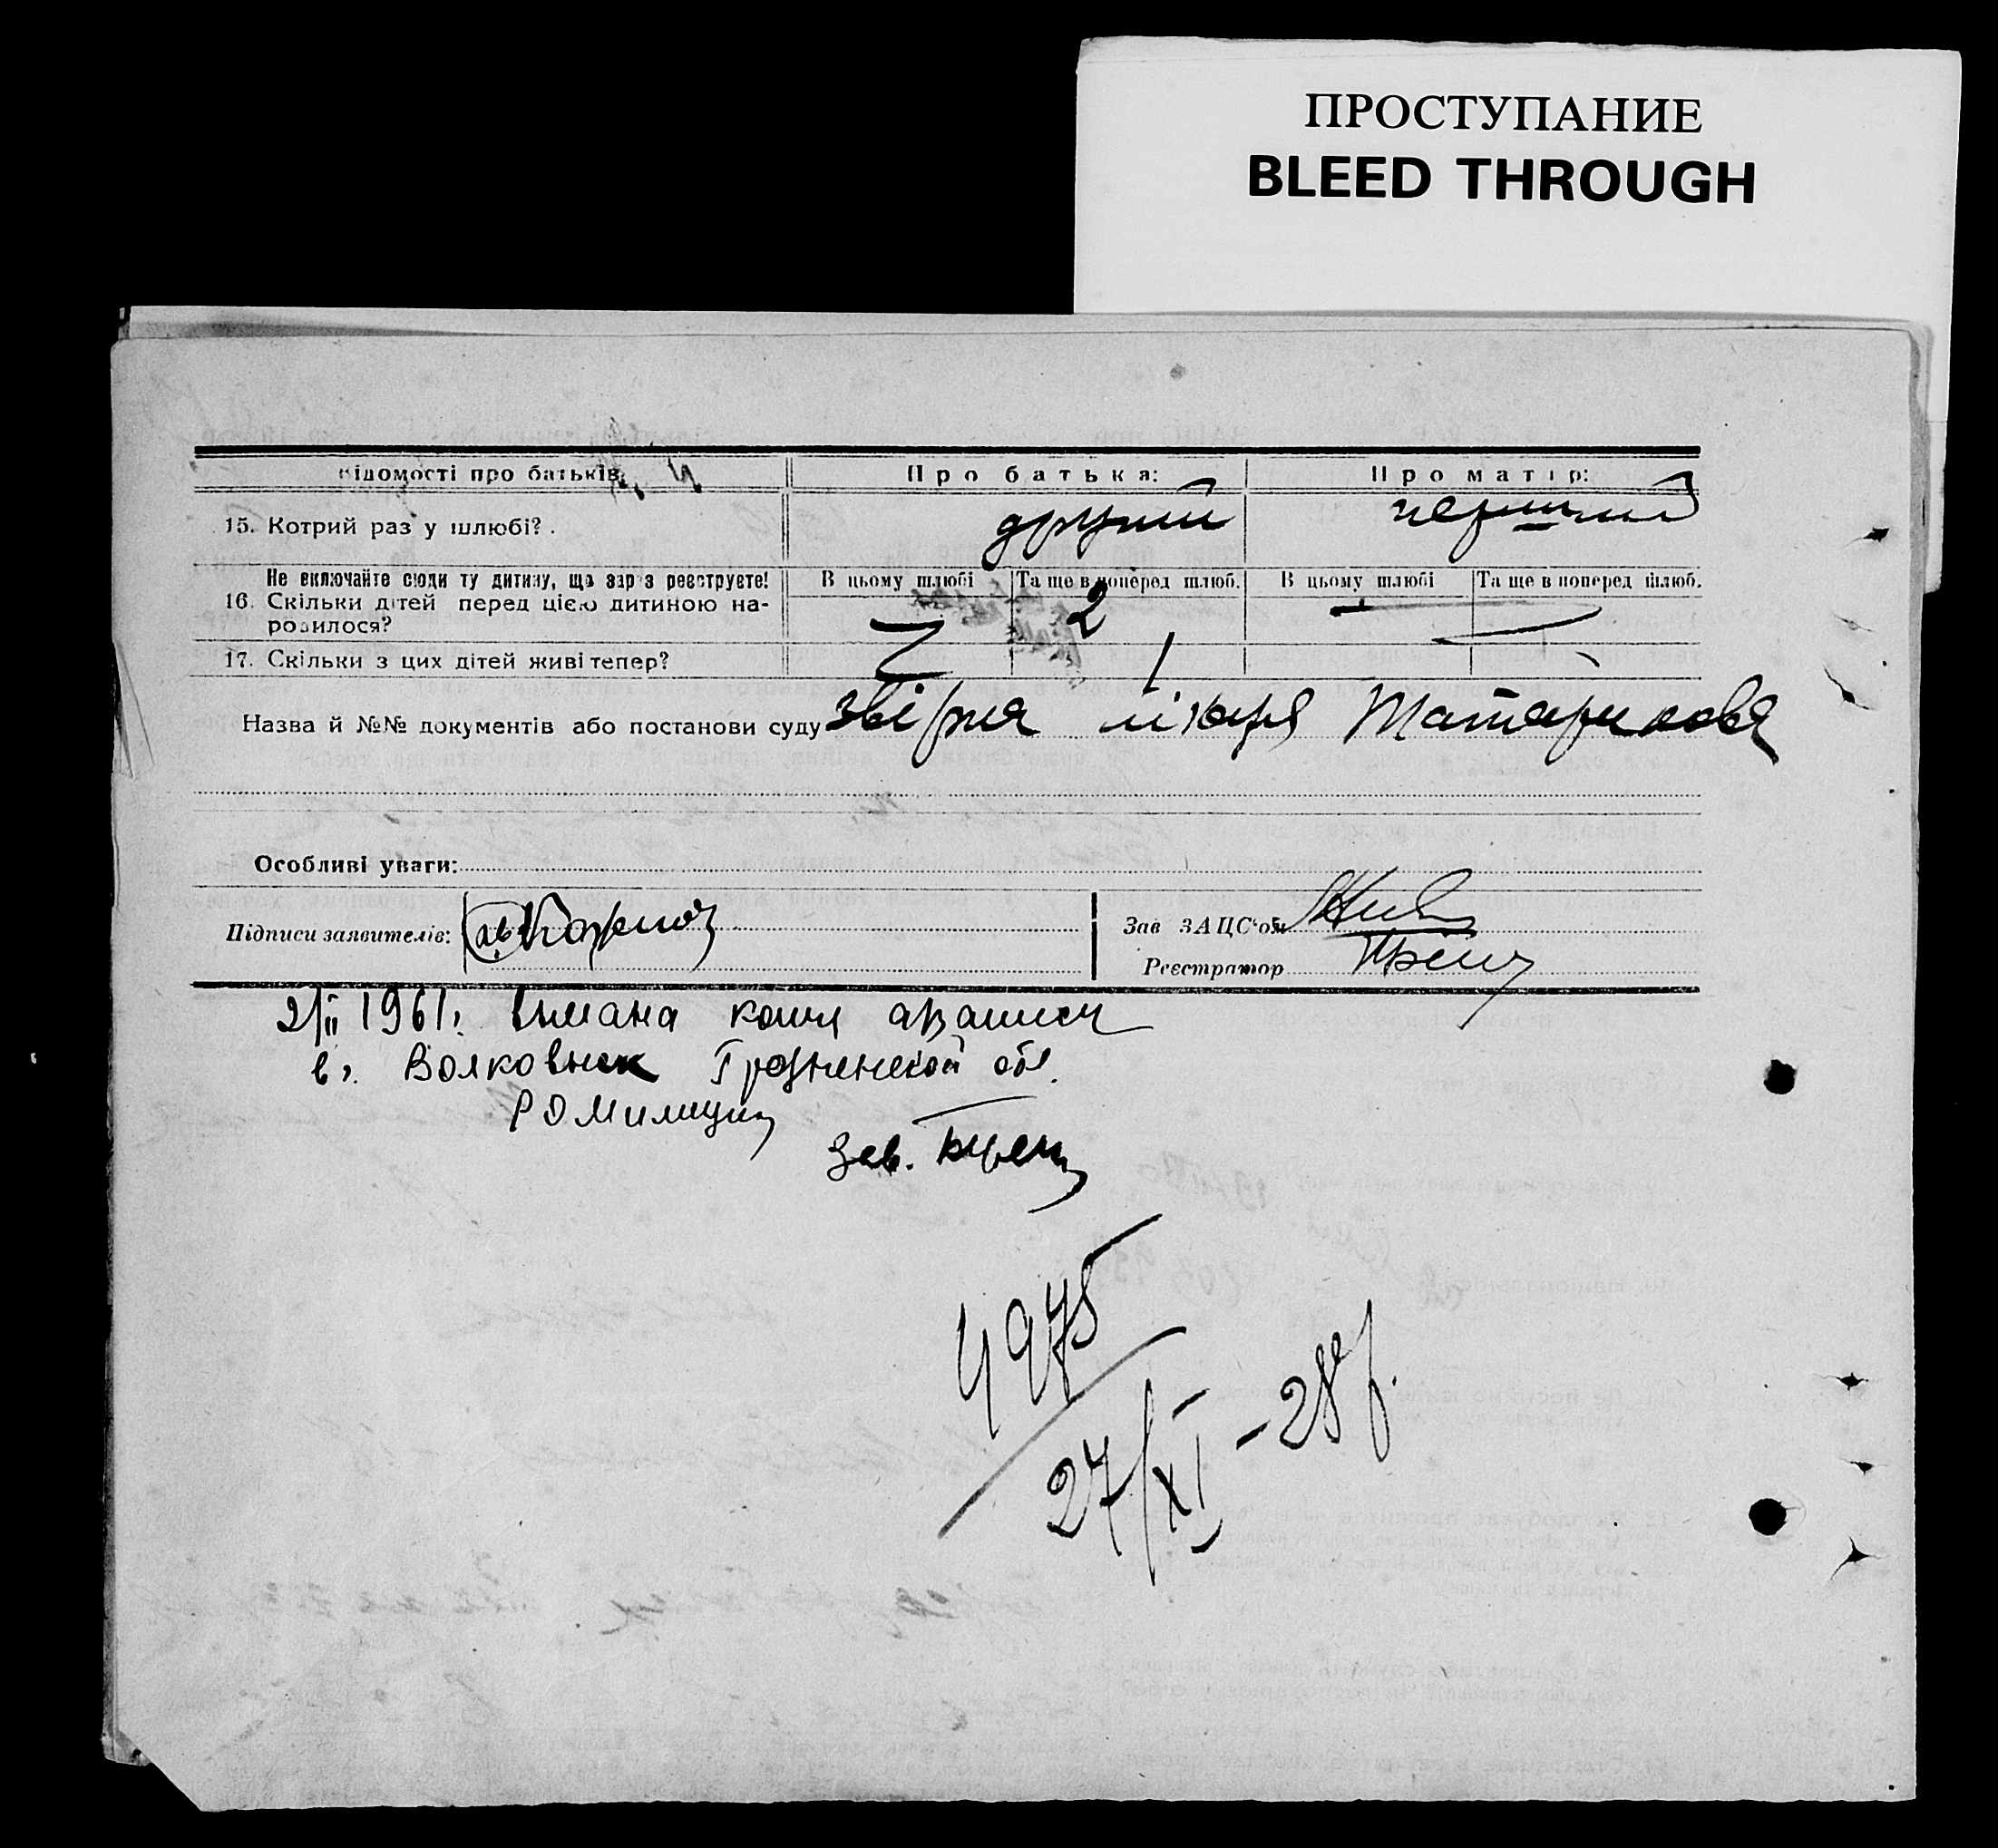 ПРОСТУПАНИЕ
BLEED THROUGH
Відомості про батьків: Про батька: Про матір:
15. Котрий раз у шлюбі? другий перший
Не включайте сюди ту дитину, що зараз реєструєте! В цьому шлюбі Та ще в поперед шлюб. В цьому шлюбі Та ще в поперед шлюб.
16. Скільки дітей перед цією дитиною на-
родилося? — 2 — —
17. Скільки з цих дітей живі тепер? — 1
Назва й №№ документів або постанови суду лікаря
Особливі уваги:
Підписи заявителів:
Зав ЗАЦС'ом
Реєстратор
2/II 1961г. копия
в г. Волковыск Гродненской обл.
РО Милиции
Зав.
4975
27/XI - 28 р.